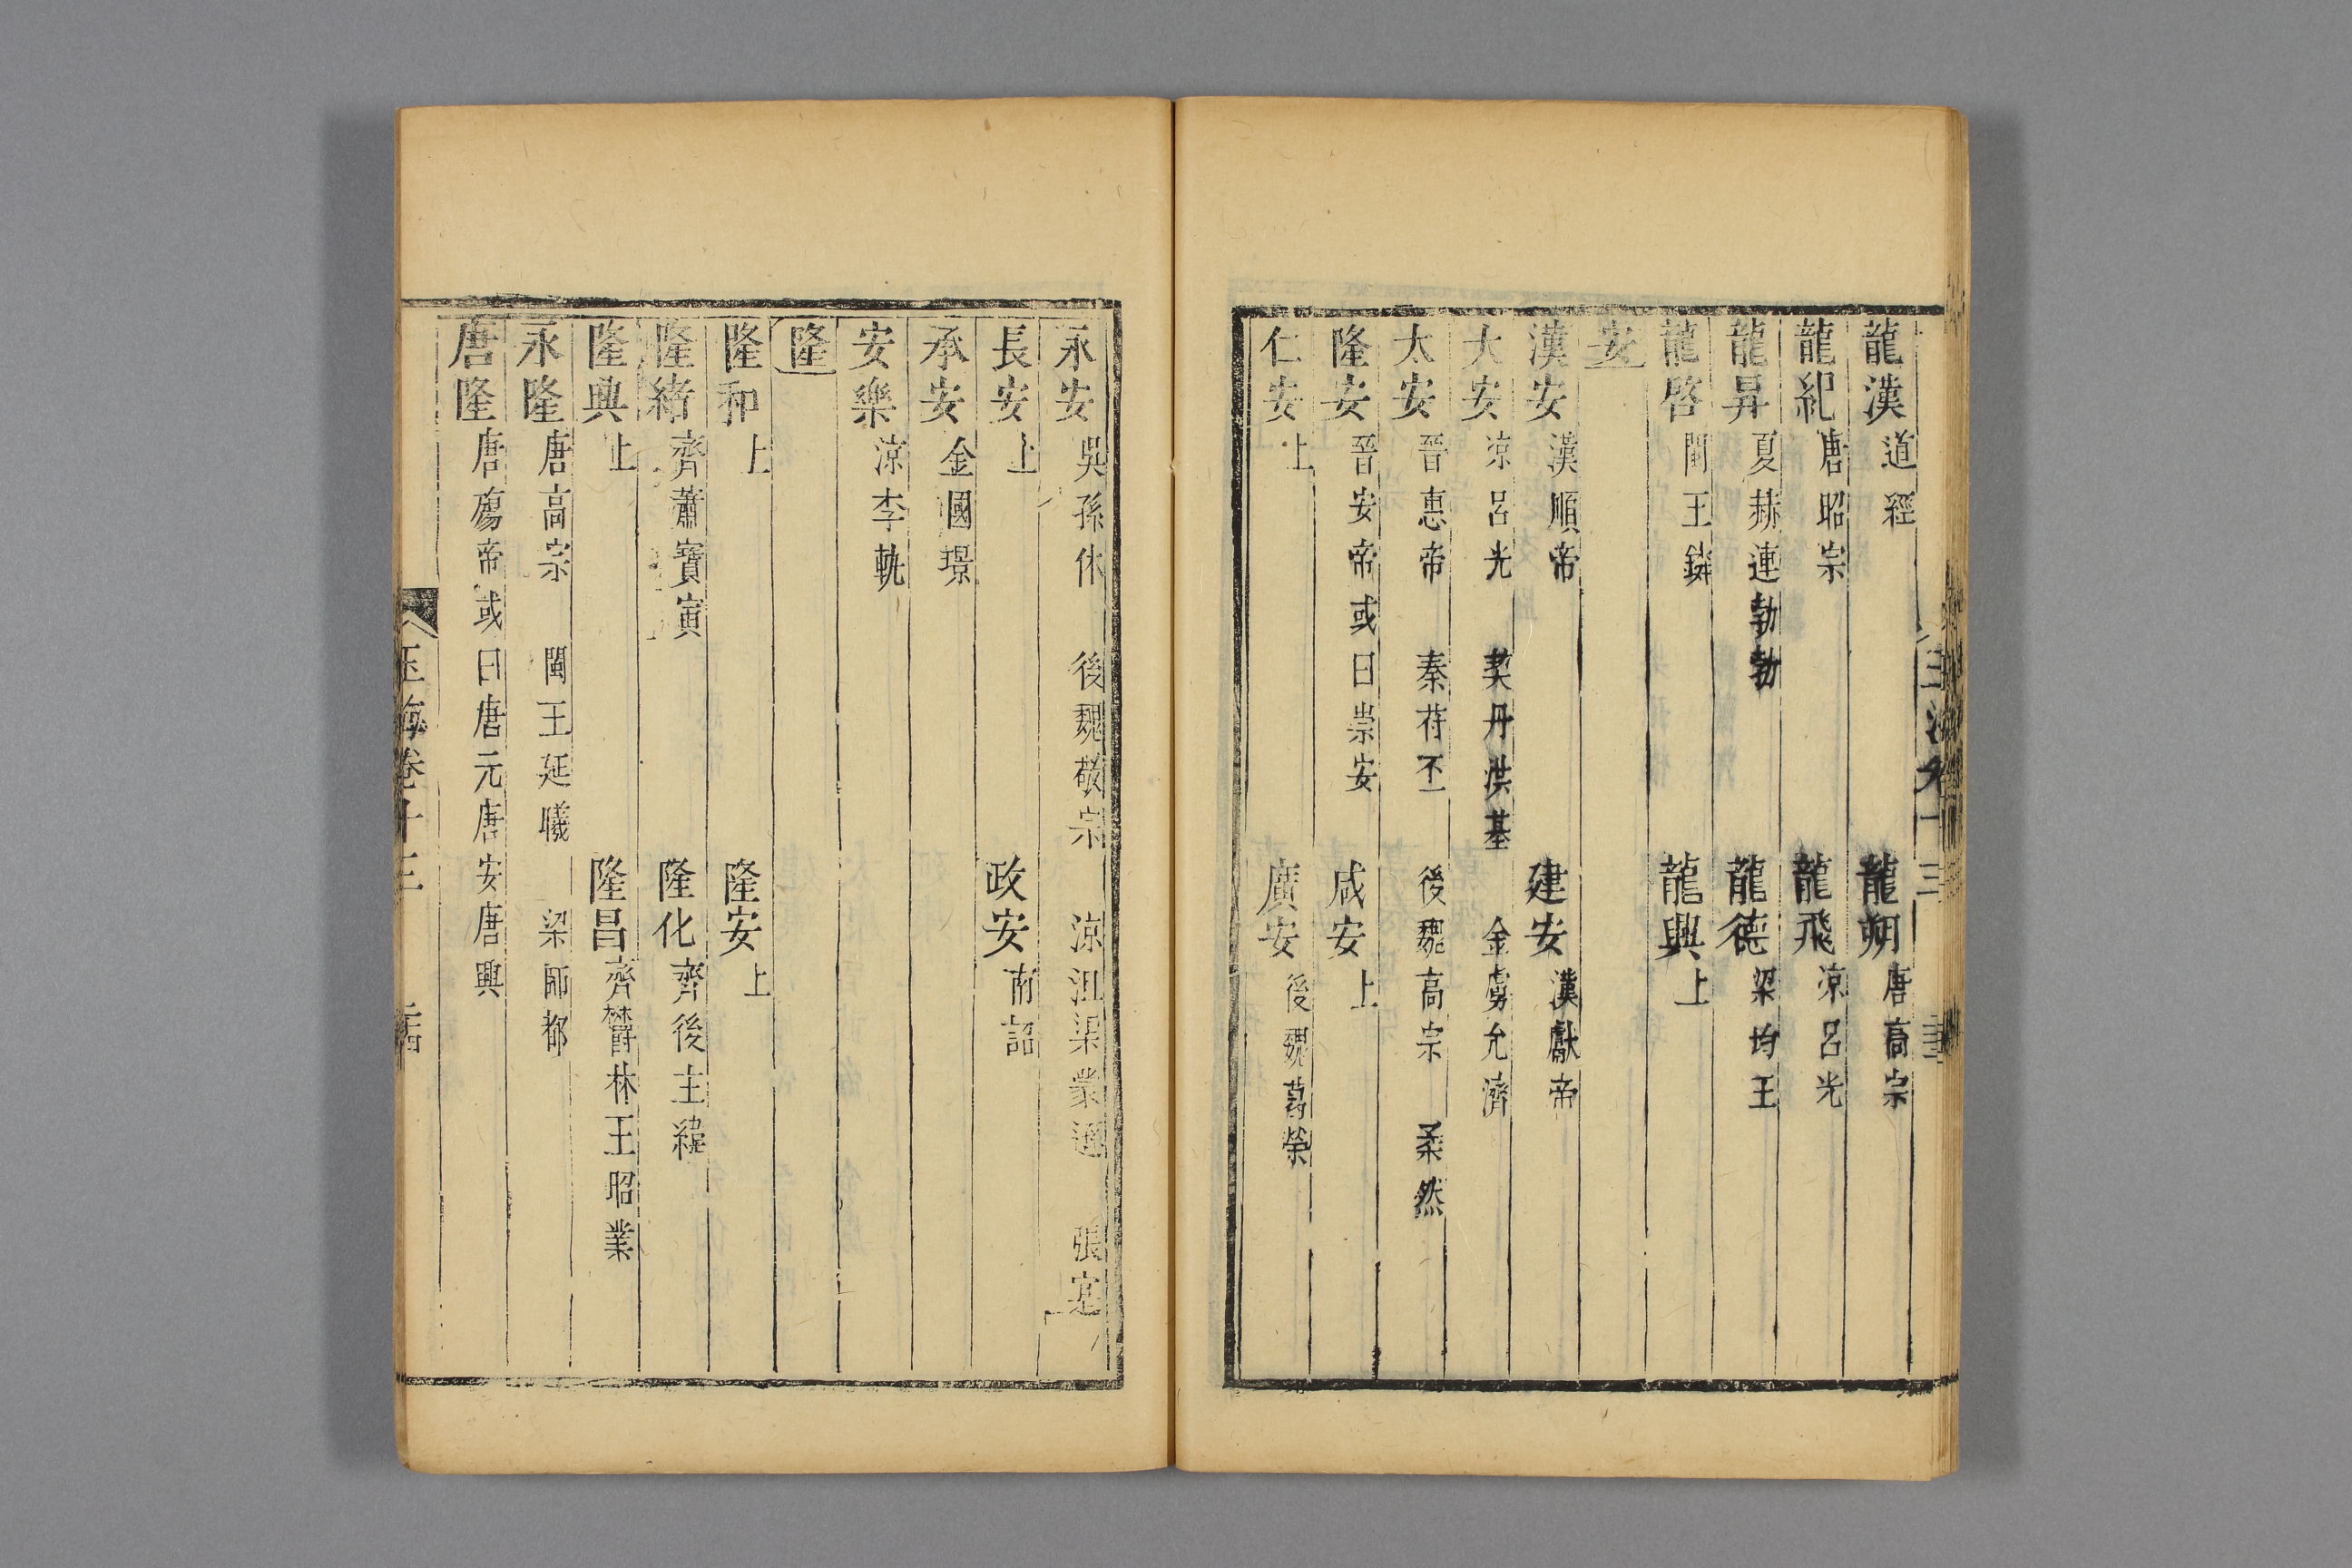 龍漢道經 龍朔唐高宗
龍紀唐昭宗 龍飛涼呂光
龍昇夏赫連勃勃 龍德梁均王
龍啓閩王鏻 龍興上
安
漢安漢順帝 建安漢獻帝
大安涼呂光 契丹洪基 金虜允濟
太安晉惠帝 秦苻丕 後魏高宗 柔然
隆安晉安帝或曰崇安 咸安上
仁安上 廣安後魏葛榮
永安吳孫休 後魏敬宗 涼沮渠業遜 張寔
長安上 政安南詔
承安金國璟
安樂涼李軌
隆
隆和上 隆安上
隆緒齊蕭寶寅 隆化齊後主緯
隆興上 隆昌齊欎林王昭業
永隆唐高宗 閩王延曦 梁師都
唐隆唐殤帝或曰唐元唐安唐興
玉海卷十三